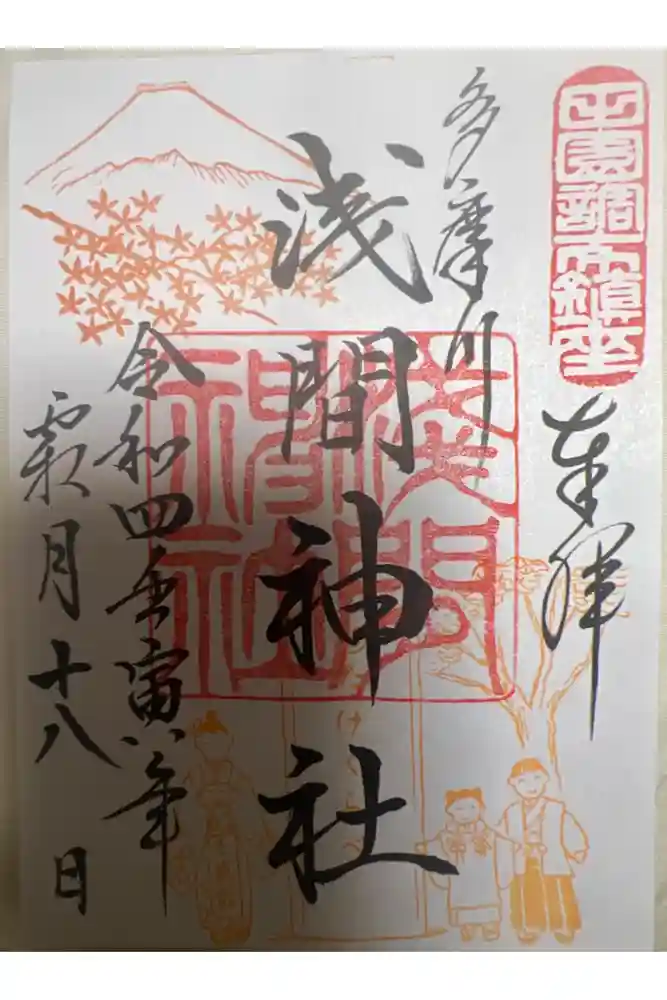 田園調布鎮座
奉拝
多摩川
浅間神社
淺間神社
令和四壬寅年
霜月十八日